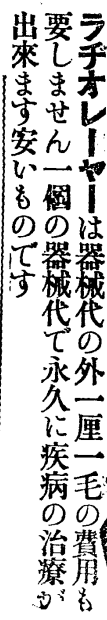 ラヂオレーヤーは器械代の外一厘一毛の費用も
要しません一個の器械代で永久に疾病の治療が
出來ます安いものです